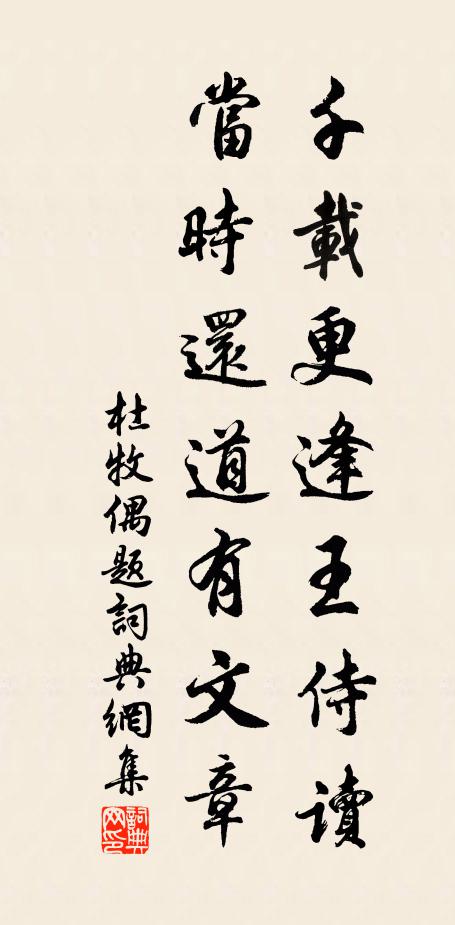 千載更逢王侍讀
當時還道有文章
杜牧偶題詞典網集
詞典网印